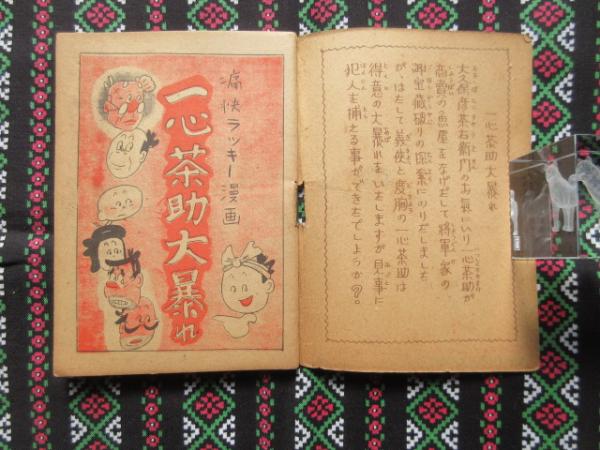 一心茶助大暴れ
大久保彦茶右衛門のお気にいり一心茶助が
商賣の魚屋をなげだして将軍家の
御金蔵破りの探索にのりだしました
が、はたして義侠と度胸の一心茶助は
得意の大暴れをいたしますが見事に
犯人を捕える事ができるでしようか?。
痛快ラッキー漫画
一心茶助大暴れ